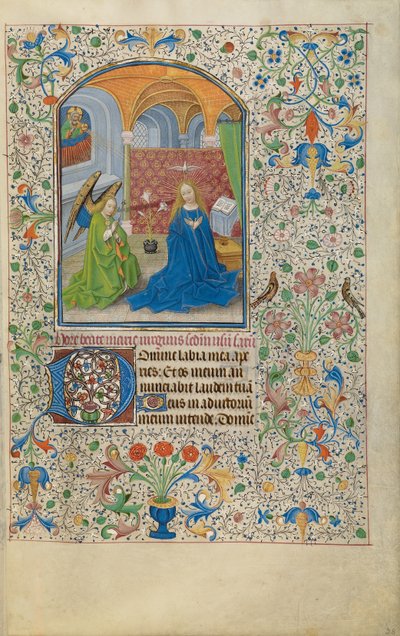 Hore beate marie virginis secundum usum Sarum
Domine labia mea ape
ries: Et os meum an
nunciabit laudem tuā
Deus in adiutoriū
meum intende. Domine